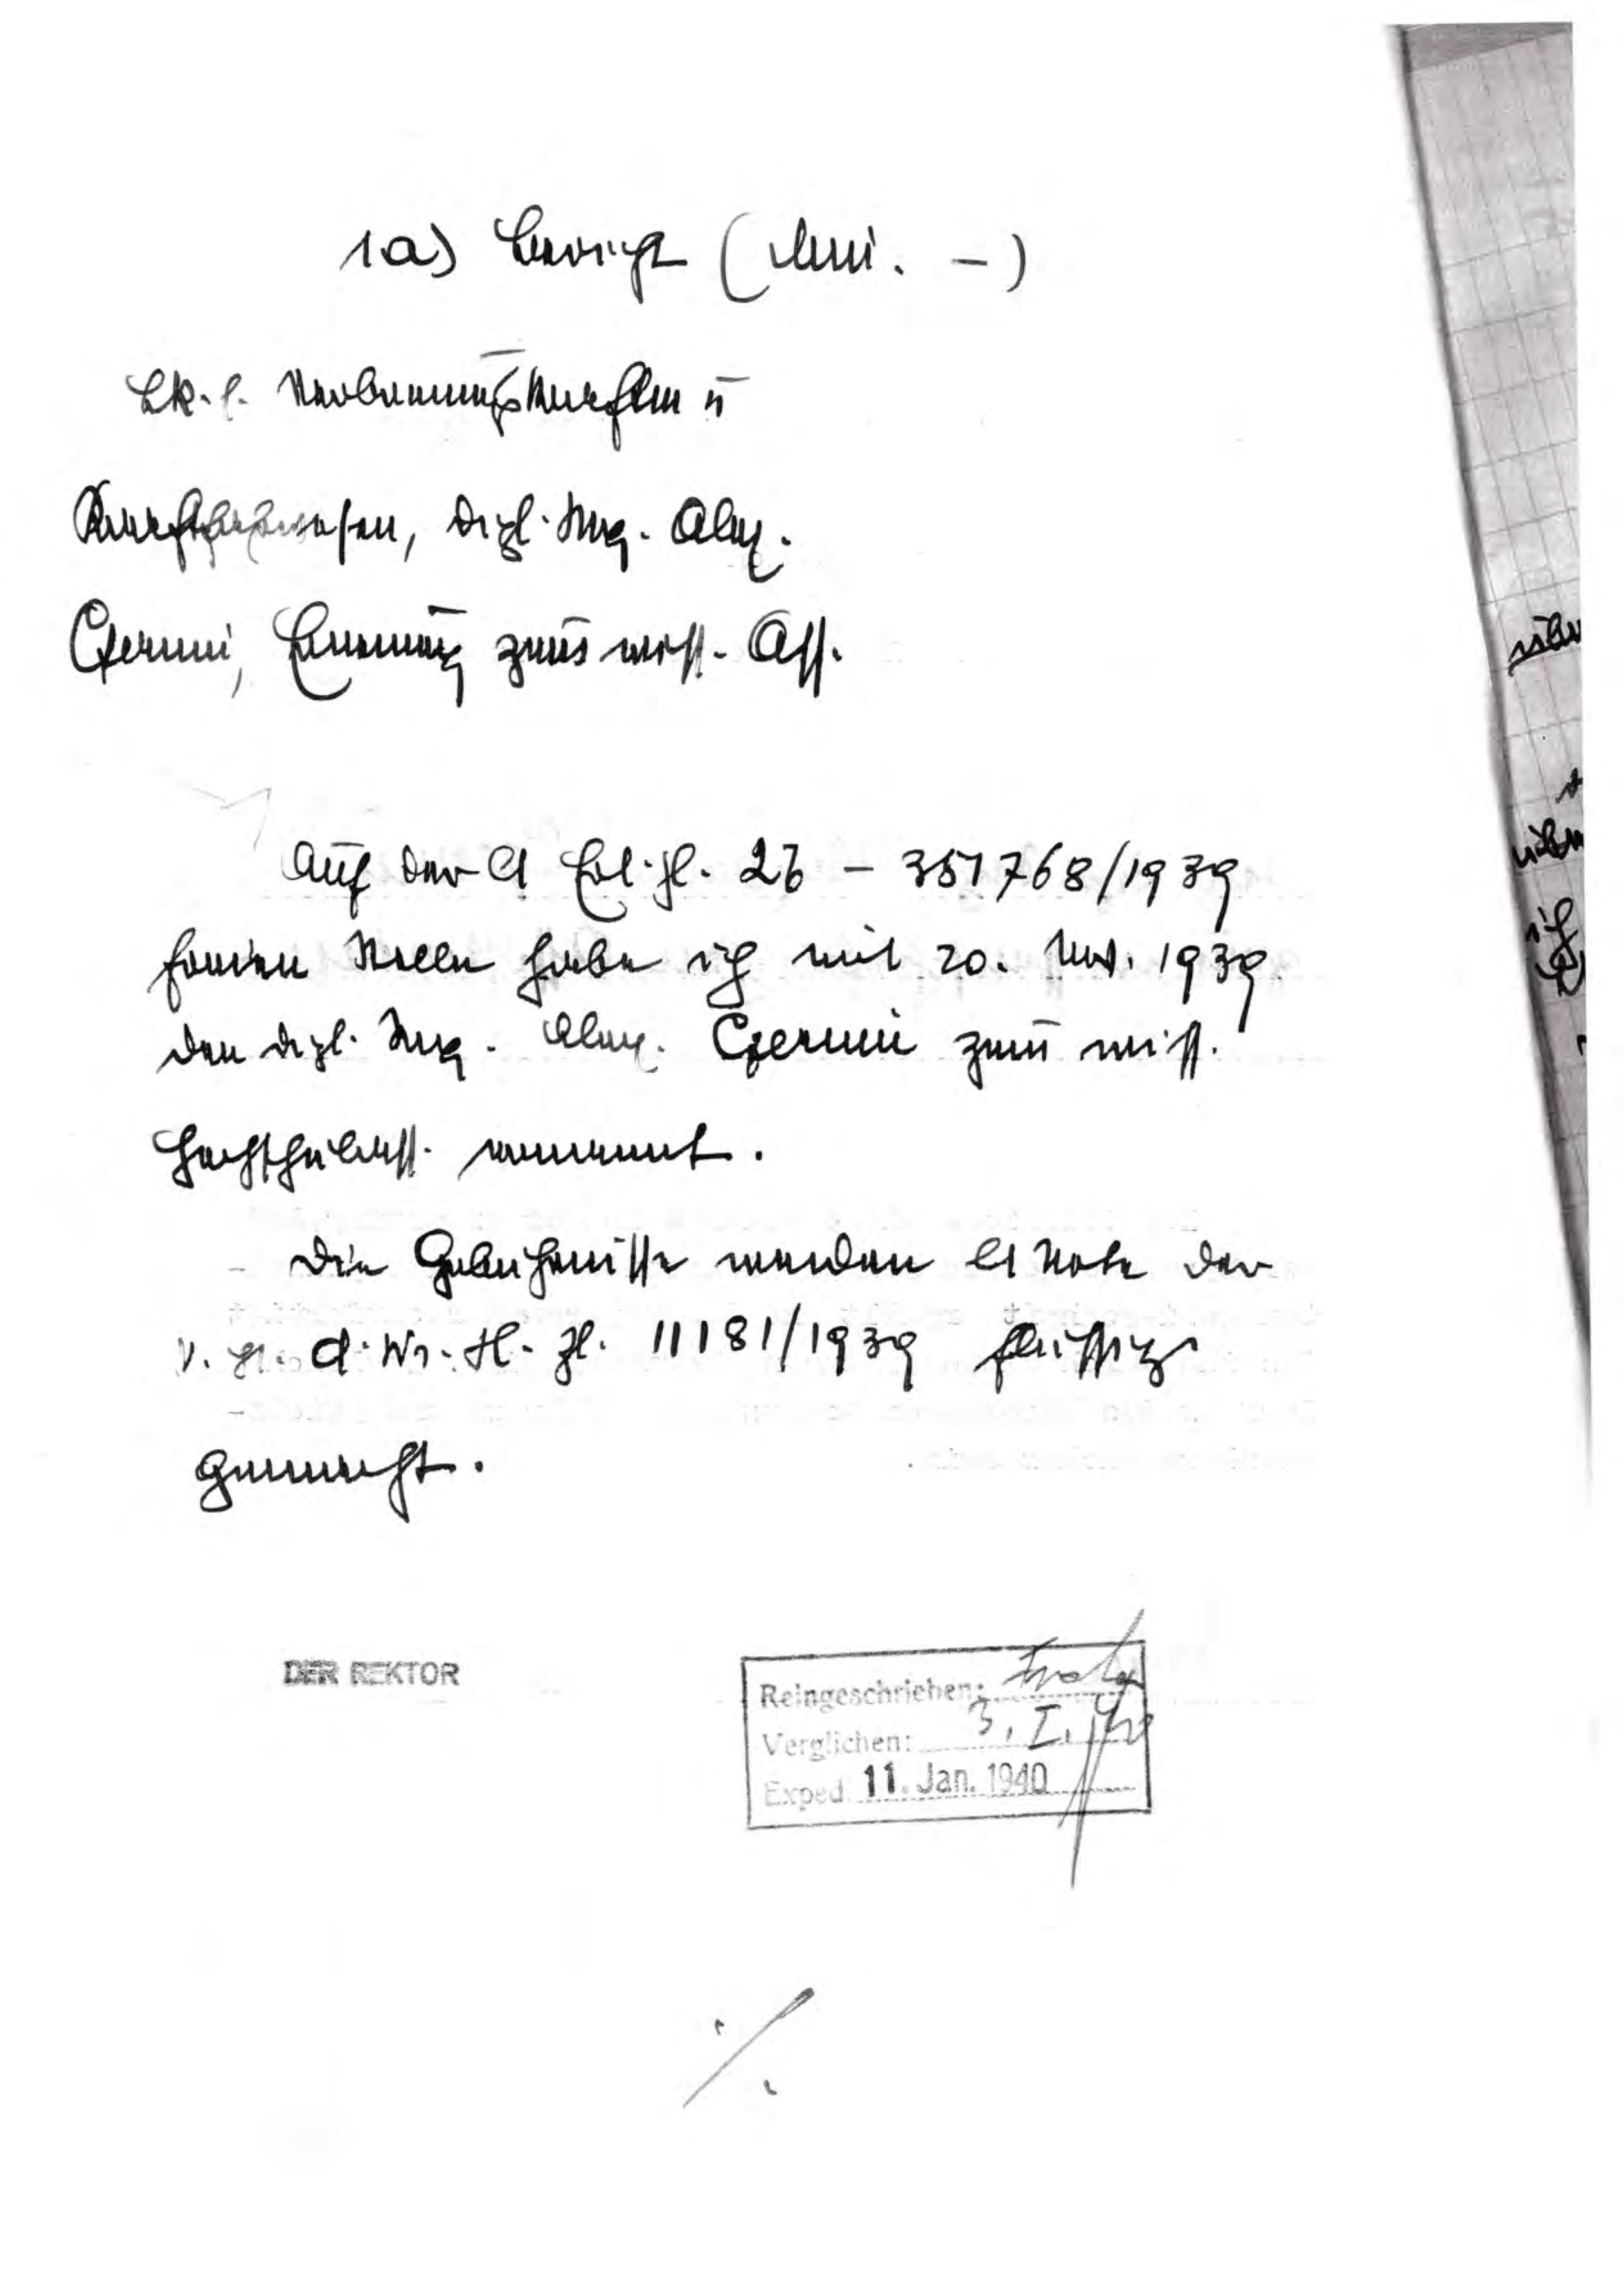 1a) Bericht (Min. –)
Lk. f. Verbrennungskraftm u
Kraftfahrwesen, Dipl. Ing. Alex.
Czerni, Ernennung zum wiss. Ass.
Auf der lt Erl. Zl. 26 – 351768/1939
freien Stelle habe ich mit 20. Nov. 1939
den Dipl. Ing. Alex. Czerni zum wiss.
Hochschulass. ernannt.
Die Gebührnisse werden lt Note der
d. Wr. H. Zl. 11181/1939 flüssig
gemacht.
DER REKTOR
Reingeschrieben:
Verglichen: 3. I. 40
Exped. 11. Jan. 1940
./.
über
ich